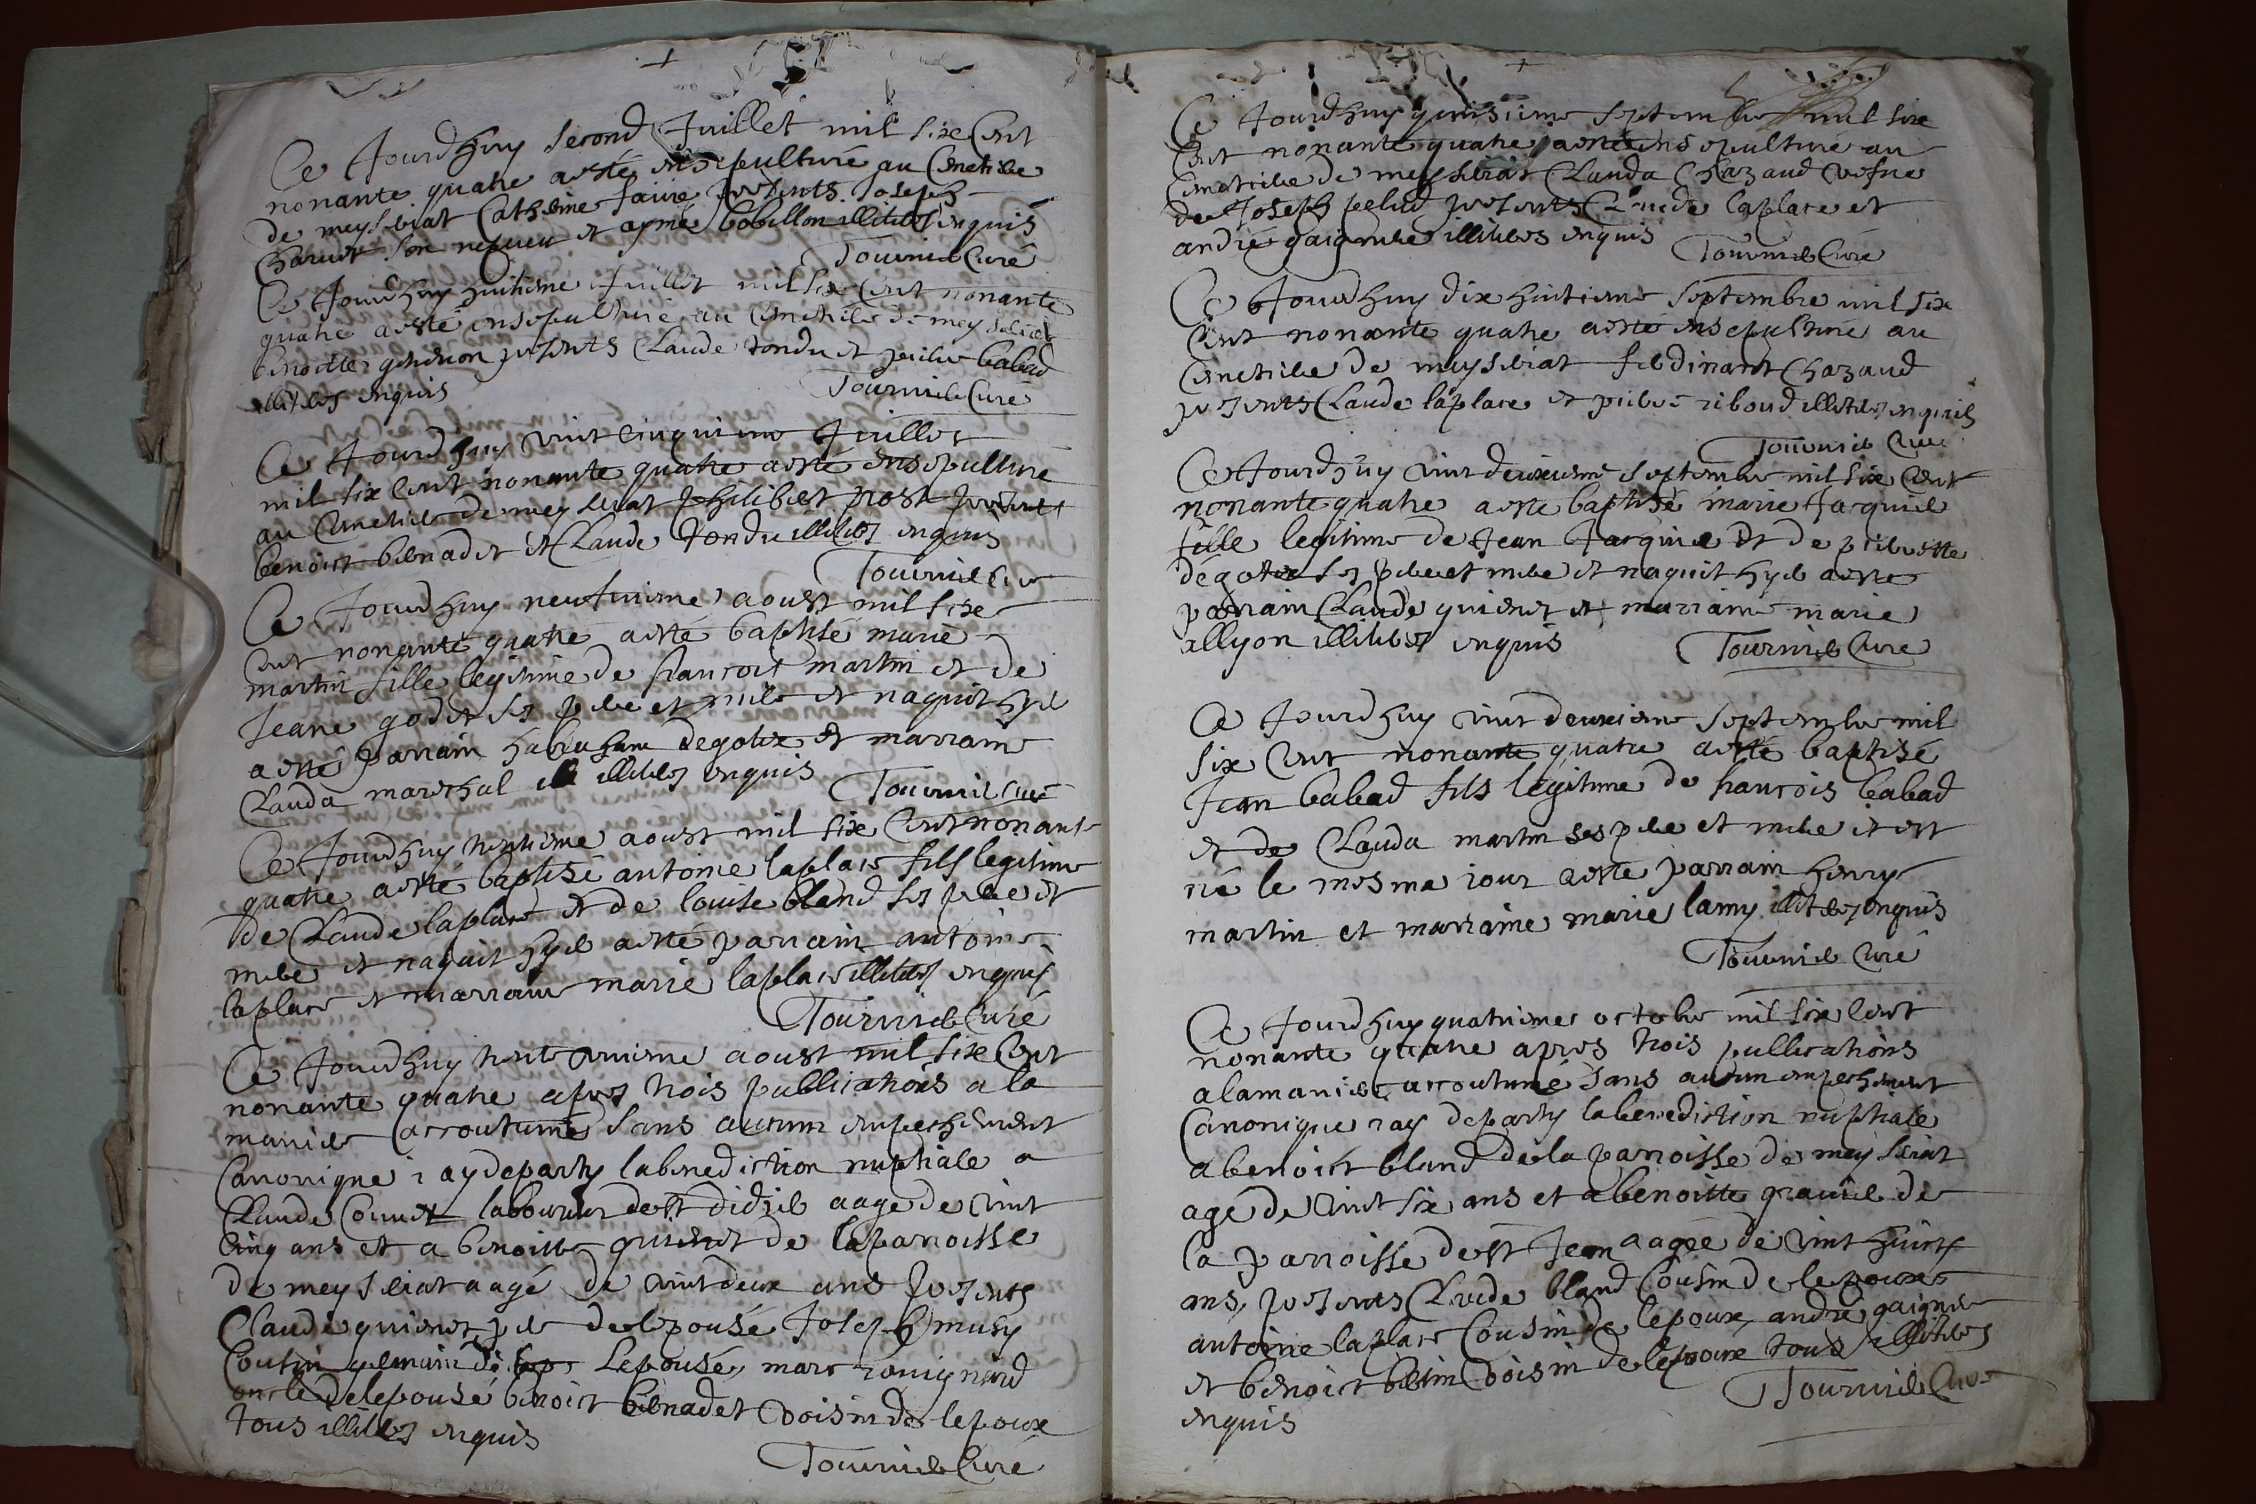 Ce Jourdhuy second Juillet mil six Cent
nonante quatre a esté ensepulturé au Cimetiere
de meyseriat Catherine faure presents Joseph
Charvet son nepveu et aymé bobillon illiteres enquis
Tournier Curé
Ce Jourdhuy huitieme Juillet mil six Cent nonante
quatre a esté ensepulturé au Cimetiere de meyseriat
benoitte presents Claude tondu et pierre babad
illiteres enquis
Tournier Curé
Ce Jourdhuy vint cinquieme Juillet
mil six Cent nonante quatre a esté ensepulturé
au Cimetiere de meyseriat philibert prost presents
benoict bernadet et Claude tondu illiteres enquis
Tournier Curé
Ce Jourdhuy neufvieme aoust mil six
Cent nonante quatre a esté baptisé marie
martin fille legitime de francois martin et de
Jeane godet ses pere et mere et naquit hyer
a esté parrain habraham degotex et marraine
Clauda mareschal illiteres enquis
Tournier Curé
Ce Jourdhuy trentieme aoust mil six Cent nonante
quatre a esté baptisé antoine laplace fils legitime
de Claude laplace et de louise bland ses pere et
mere et naquit hyer a esté parrain antoine
laplace et marraine marie laplace illiteres enquis
Tournier Curé
Ce Jourdhuy trente unieme aoust mil six Cent
nonante quatre apres trois publications a la
maniere accoutumé sans aucun empechement
Canonique i ay departy la benediction nuptiale a
Claude Convert laboureur de st didier aagé de vint
cinq ans et a benoitte guienet de la parroisse
de meyseriat aagé de vint deux ans presents
Claude guienet pere de lepousé Joseph musy
Cousin germain de lepousé, marc ronignard
oncle de lepousé benoict bernadet voisin de lepoux
tous illiteres enquis
Tournier Curé
Ce Jourdhuy quinsieme septembre mil six
Cent nonante quatre a esté ensepulturé au
Cimetiere de meyseriat Clauda Chazaud vefve
de Joseph pelud presents Claude laplace et
andré gaignere illiteres enquis
Tournier Curé
Ce Jourdhuy dix huitieme septembre mil six
Cent nonante quatre a esté ensepulturé au
Cimetiere de meyseriat ferdinant Chazaud
presents Claude laplace et pierre riboud illiteres enquis
Tournier Curé
Ce Jourdhuy vint deuxieme septembre mil six Cent
nonante quatre a esté baptisé marie Jacquier
fille legitime de Jean Jacquier et de pierrette
degotex ses pere et mere et naquit hyer a esté
parrain Claude guienet et marraine marie
allyon illiteres enquis
Tournier Curé
Ce Jourdhuy vint deuxieme septembre mil
six Cent nonante quatre a esté baptisé
Jean babad fils legitime de francois babad
et de Clauda martin ses pere et mere et est
né le mesme iour a esté parrain henry
martin et marraine marie lamy illiteres enquis
Tournier Curé
Ce Jourdhuy quatrieme octobre mil six Cent
nonante quatre apres trois publications
a la maniere accoutumé sans aucun empechement
Canonique i ay departy la benediction nuptiale
a benoict bland de la parroisse de meyseriat
agé de vint six ans et a benoitte gravier de
la parroisse de st Jean aagée de vint huict
ans, presents Claude bland Cousin de lepoux
antoine laplace Cousin de lepoux, andré gaignere
et benoict voisin de lepoux tous illiteres
Tournier Curé
enquis